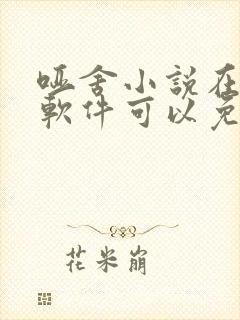 哑舍小說在
軟件可以免
花米崩